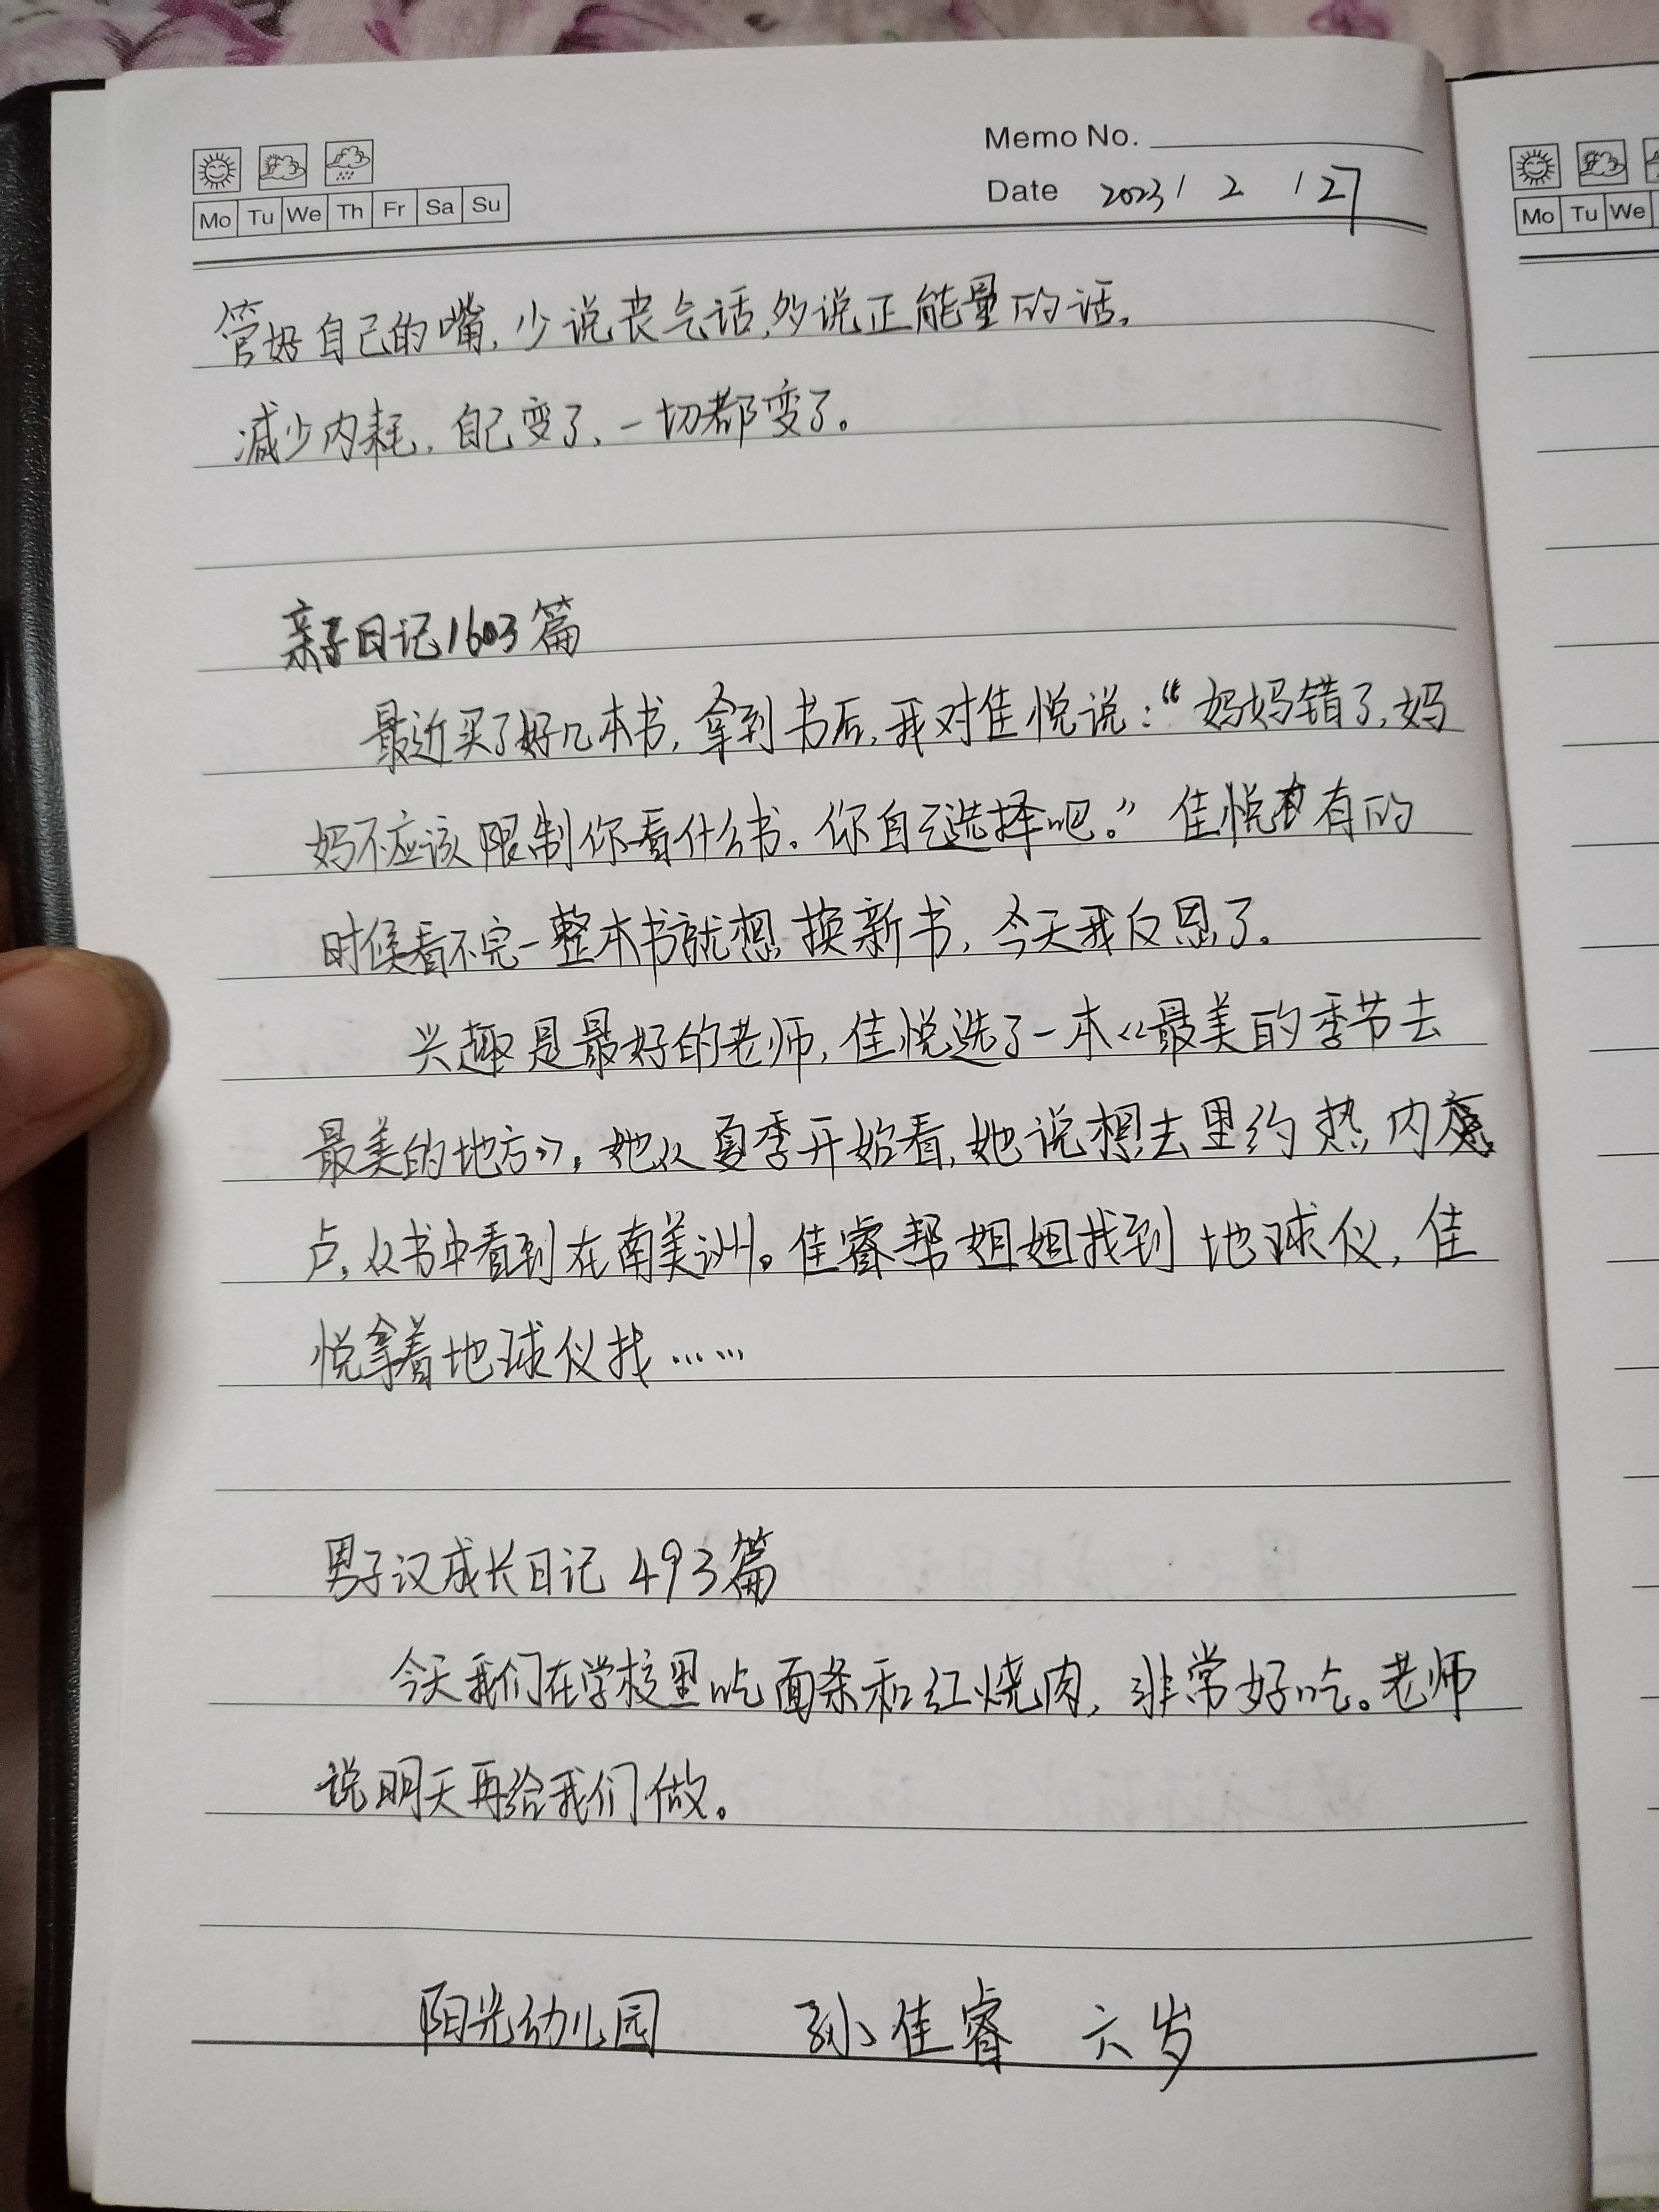 Memo No.
Mo Tu We Th Fr Sa Su
Date 2023 / 2 / 27
管好自己的嘴,少说丧气话,多说正能量的话,
减少内耗,自己变了、一切都变了。
亲子日记1603篇
最近买了好几本书,拿到书后,我对佳悦说:“妈妈错了,妈
妈不应该限制你看什么书。你自己选择吧。”佳悦有的
时候看不完一整本书就想换新书,今天我反思了。
兴趣是最好的老师,佳悦选了一本《最美的季节去
最美的地方》,她从夏季开始看,她说想去里约热内
卢,从书中看到在南美洲。佳睿帮姐姐找到地球仪,佳
悦拿着地球仪找……
男子汉成长日记493篇
今天我们在学校里吃面条和红烧肉,非常好吃。老师
说明天再给我们做。
阳光幼儿园 孙佳睿 六岁
Mo Tu We